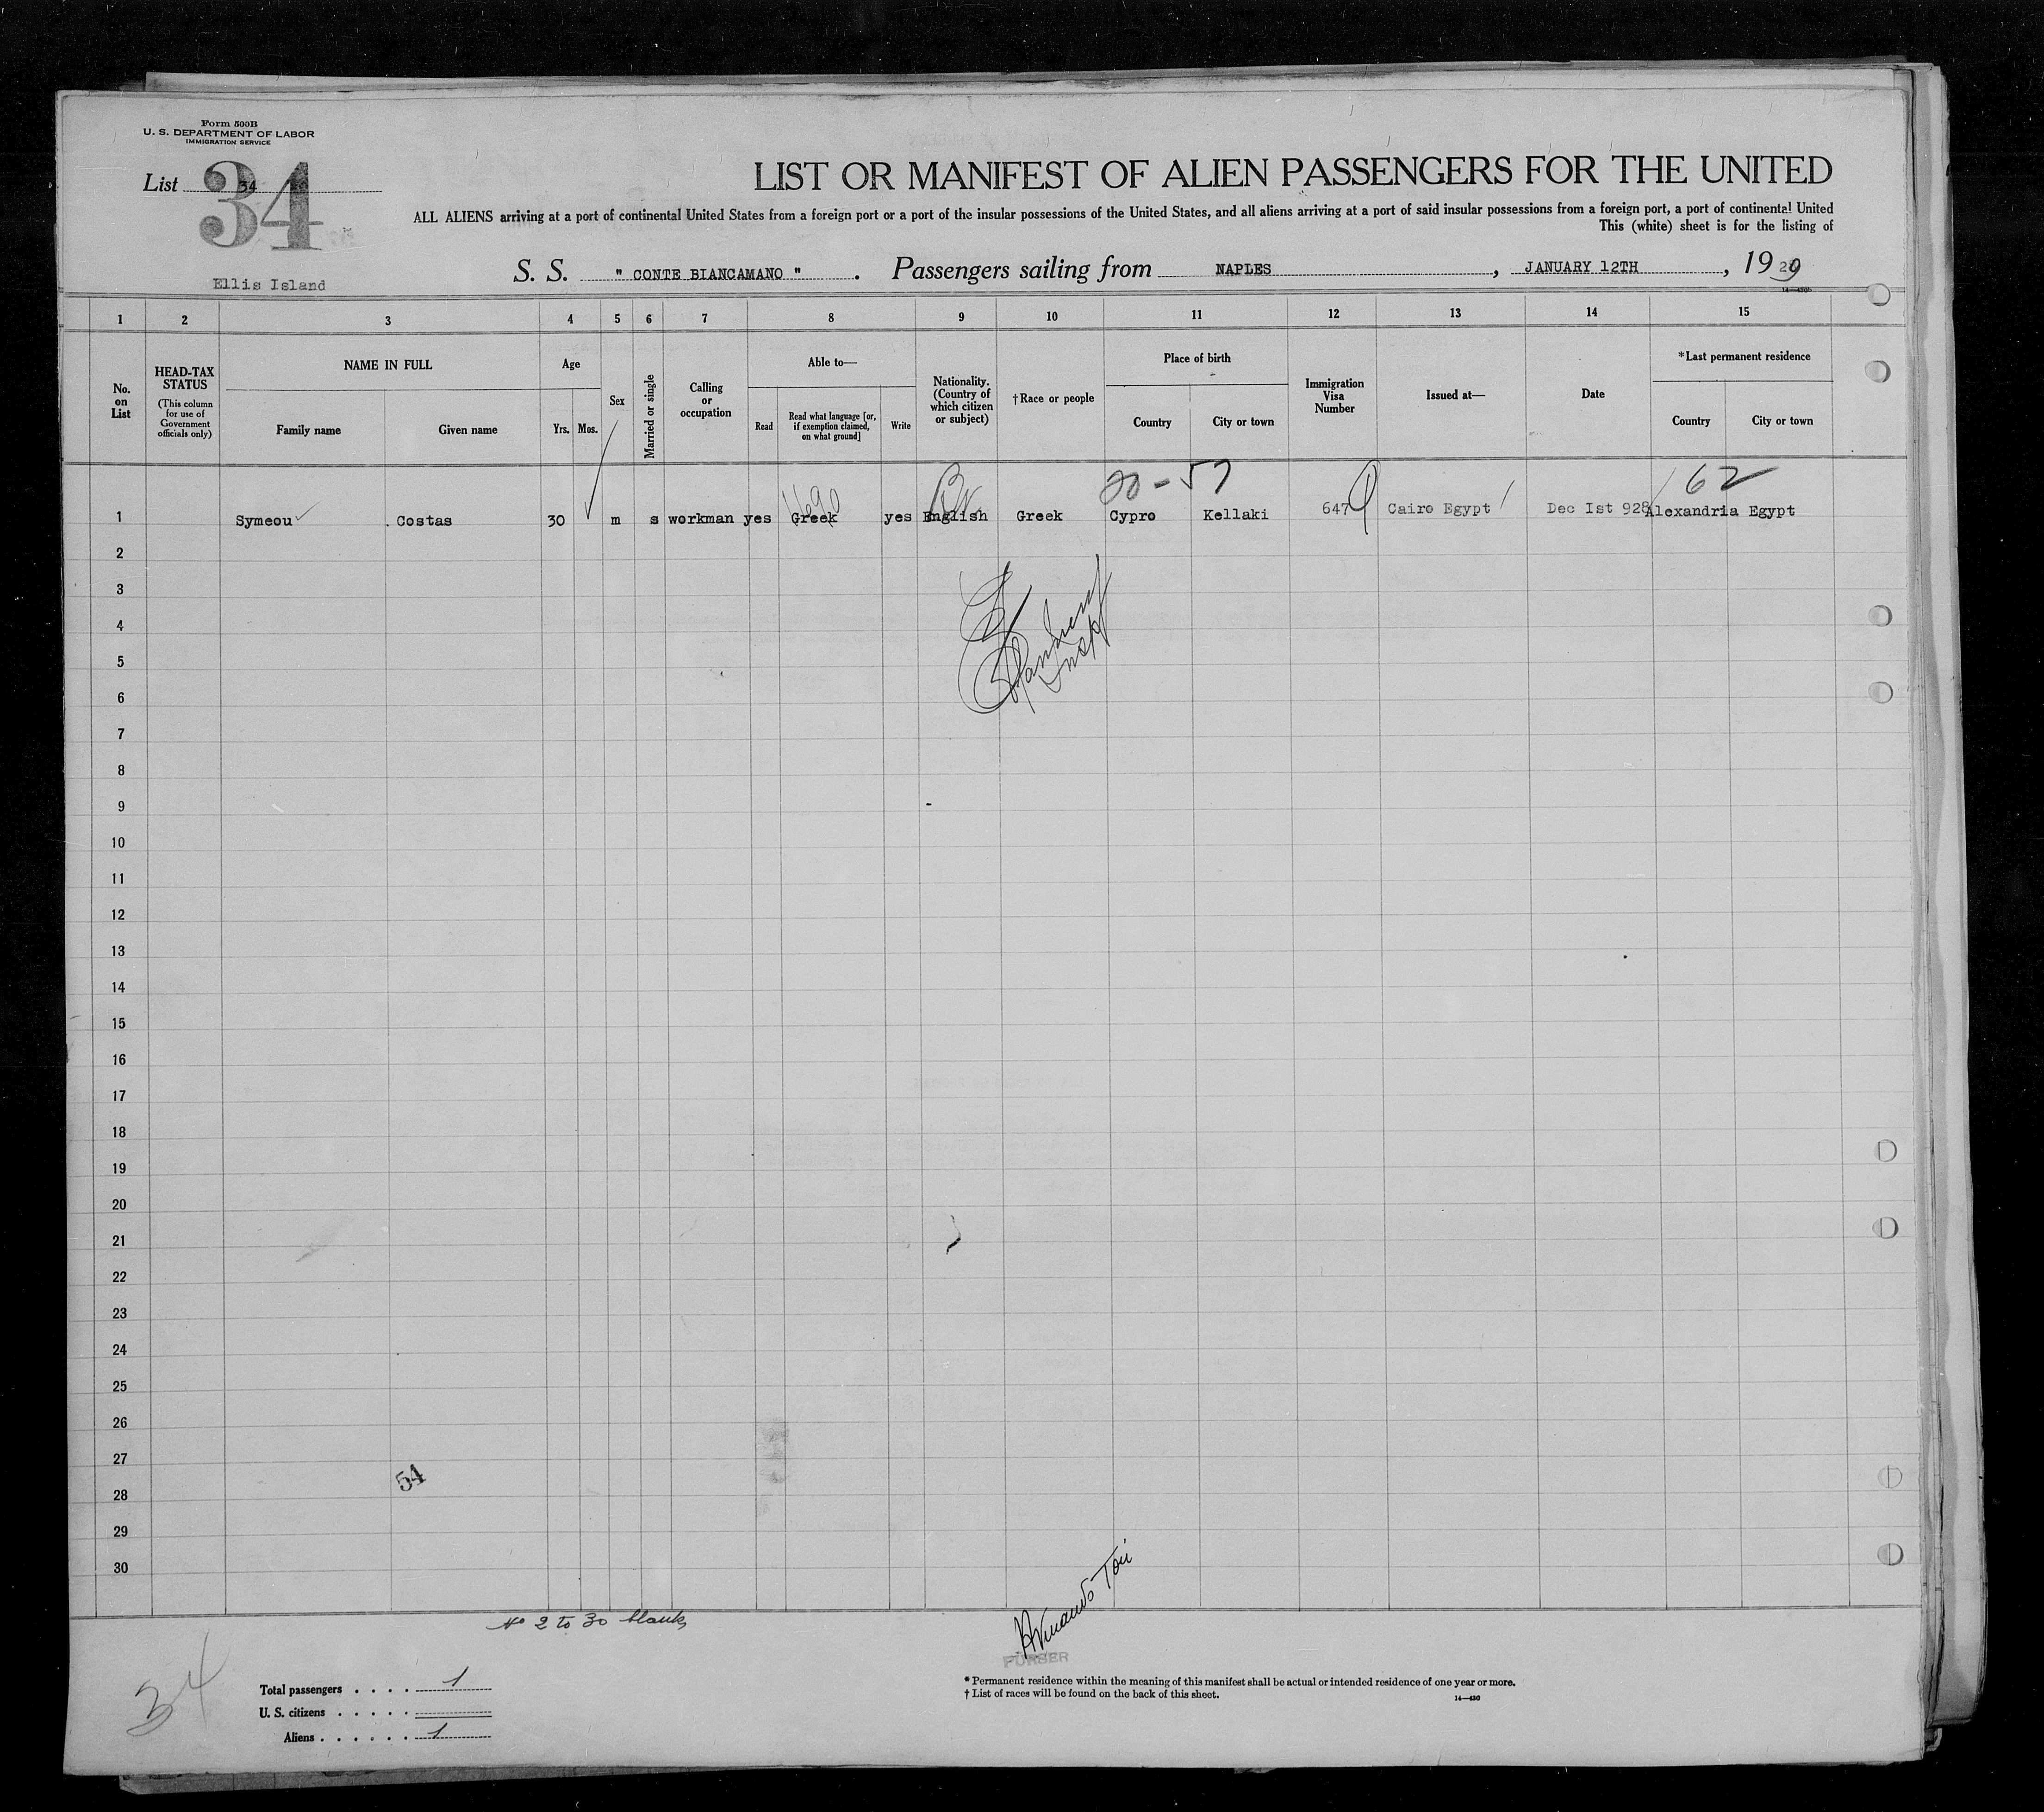 Form 500B
U. S. DEPARTMENT OF LABOR
IMMIGRATION SERVICE
List 34
34
Ellis Island
LIST OR MANIFEST OF ALIEN PASSENGERS FOR THE UNITED
ALL ALIENS arriving at a port of continental United States from a foreign port or a port of the insular possessions of the United States, and all aliens arriving at a port of said insular possessions from a foreign port, a port of continental United
This (white) sheet is for the listing of
S. S. " CONTE BIANCAMANO " . Passengers sailing from NAPLES , JANUARY 12TH , 1929
1 2 3 4 5 6 7 8 9 10 11 12 13 14 15
No. on List
HEAD-TAX STATUS
(This column for use of Government officials only)
NAME IN FULL
Family name Given name
Age
Yrs. Mos.
Sex
Married or single
Calling or occupation
Able to—
Read
Read what language [or, if exemption claimed, on what ground]
Write
Nationality. (Country of which citizen or subject)
†Race or people
Place of birth
Country City or town
Immigration Visa Number
Issued at—
Date
*Last permanent residence
Country City or town
Br 20-57 62
1 Symeou Costas 30 m s workman yes Greek yes English Greek Cypro Kellaki 647 Cairo Egypt Dec 1st 928 Alexandria Egypt
2
3
4
5
6
7
8
9
10
11
12
13
14
15
16
17
18
19
20
21
22
23
24
25
26
27
54
28
29
30
No 2 to 30 blanks
PURSER
34
Total passengers . . . . 1
U. S. citizens . . . . .
Aliens . . . . . . 1
* Permanent residence within the meaning of this manifest shall be actual or intended residence of one year or more.
† List of races will be found on the back of this sheet.
14—430